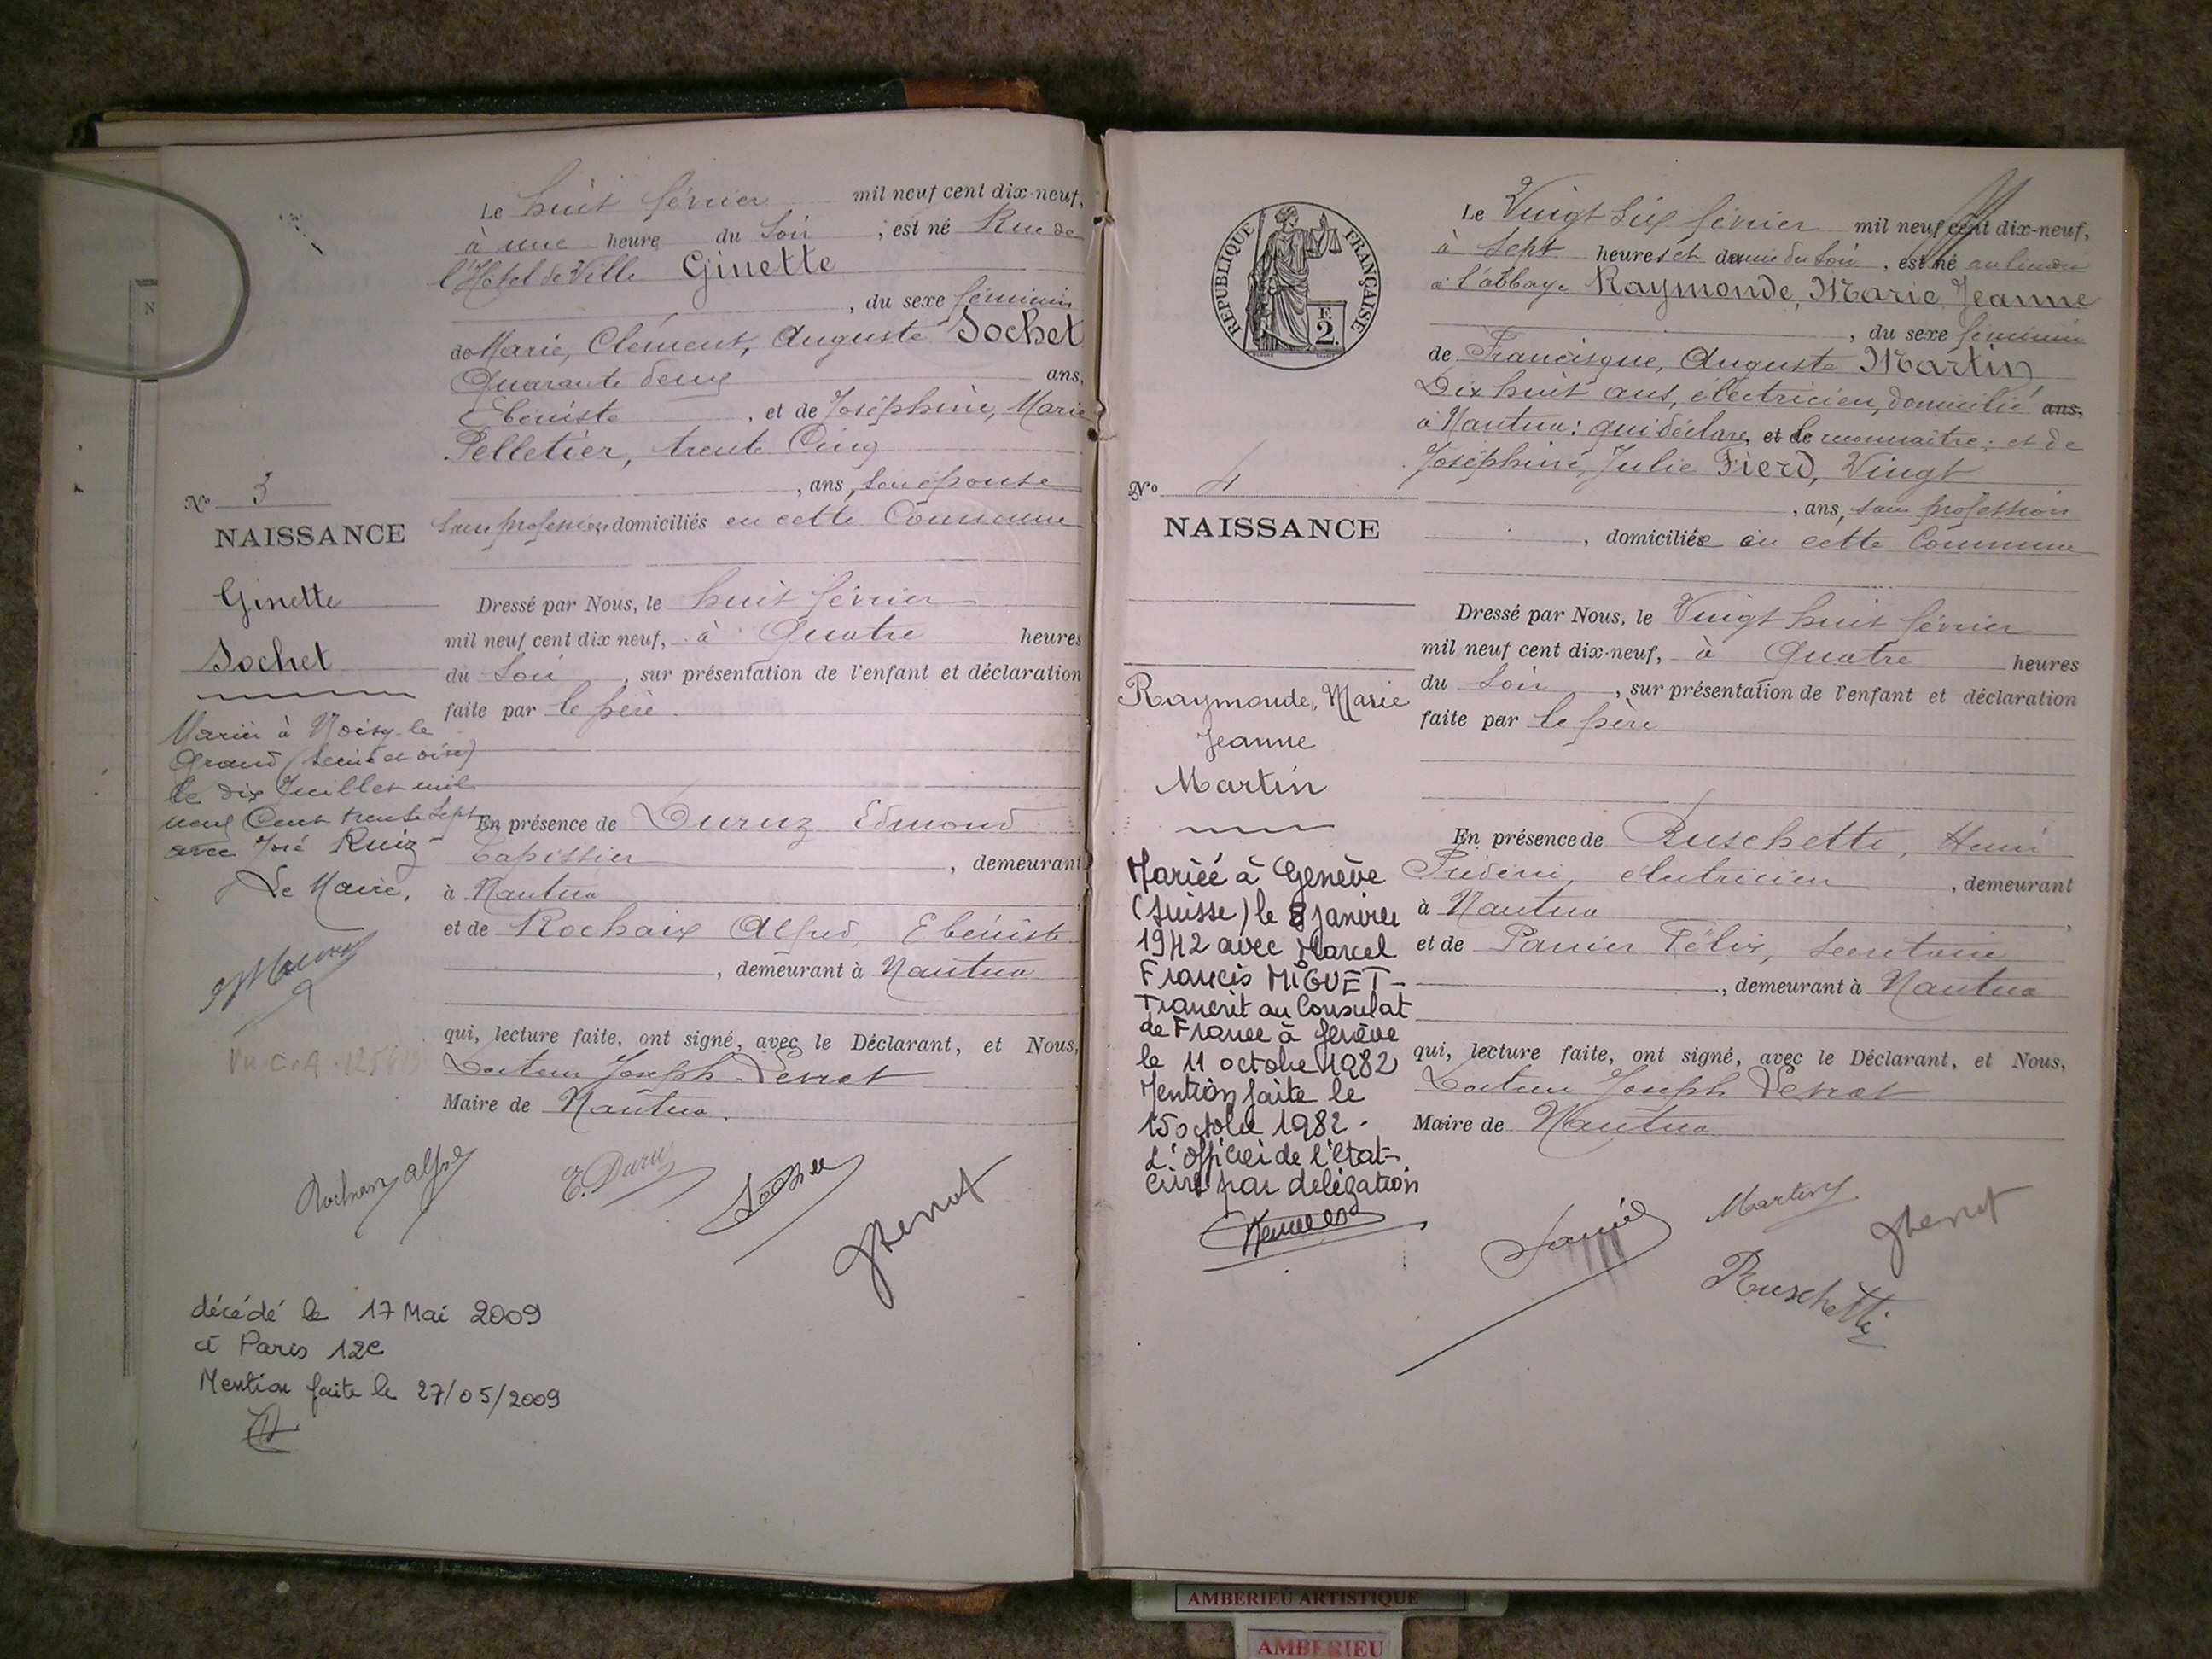 Le huit février mil neuf cent dix-neuf,
à une heure du soir, est né Rue de
l'Hôtel de Ville Ginette
, du sexe féminin
de Marie, Clément, Auguste Sochet
Quarante deux ans,
Ebéniste, et de Joséphine, Marie
Pelletier, trente Cinq
, ans, son épouse
sans profession, domiciliés en cette Commune
No 3
NAISSANCE
Ginette
Sochet
Dressé par Nous, le huit février
mil neuf cent dix neuf, à Quatre heures
du soir, sur présentation de l'enfant et déclaration
faite par le père
Mariée à Noisy-le
Grand (Seine et oise)
le dix Juillet mil
neuf Cent trente Sept
avec José Ruiz
Le Maire,
En présence de Duruz Edmond
Tapissier, demeurant
à Nantua
et de Rochaix Alfred, Ebéniste
, demeurant à Nantua
qui, lecture faite, ont signé, avec le Déclarant, et Nous,
Docteur Joseph
Maire de Nantua.
E. Duru
décédé le 17 Mai 2009
à Paris 12e
Mention faite le 27/05/2009
REPUBLIQUE FRANÇAISE
F.
2.
Le Vingt Six février mil neuf cent dix-neuf,
à Sept heures et demie du soir, est né au lieudit
à l'abbaye Raymonde, Marie Jeanne
, du sexe féminin
de Francisque, Auguste Martin
Dix huit ans, électricien, domicilié ans,
à Nantua: qui déclare, et le reconnaître; et de
Joséphine, Julie Fierd, Vingt
, ans, sans profession
, domiciliée en cette Commune
No 4
NAISSANCE
Raymonde, Marie
Jeanne
Martin
Dressé par Nous, le Vingt huit février
mil neuf cent dix-neuf, à Quatre heures
du soir, sur présentation de l'enfant et déclaration
faite par le père
Mariée à Genève
(Suisse) le 8 janvier
1942 avec Marcel
Francis MIGUET -
Transcrit au Consulat
de France à Genève
le 11 octobre 1982
Mention faite le
15 octobre 1982 -
L'officier de l'état-
civil par délégation
En présence de Ruschetti, Henri
électricien, demeurant
à Nantua
et de Panier Félix, secrétaire
, demeurant à Nantua
qui, lecture faite, ont signé, avec le Déclarant, et Nous,
Docteur Joseph
Maire de Nantua
Martin
Ruschetti
AMBERIEU ARTISTIQUE
AMBERIEU